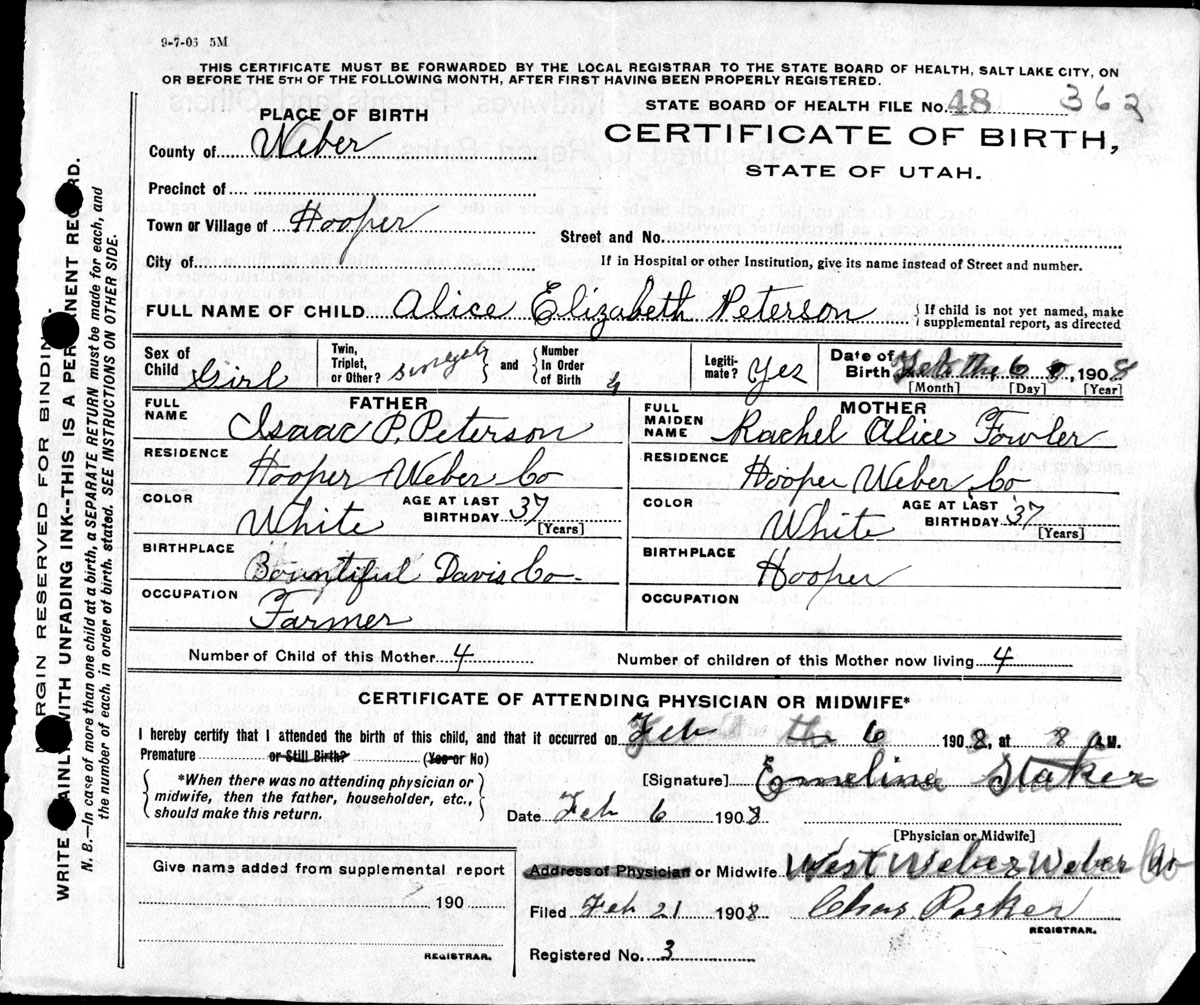 9-7-05 5M
THIS CERTIFICATE MUST BE FORWARDED BY THE LOCAL REGISTRAR TO THE STATE BOARD OF HEALTH, SALT LAKE CITY, ON
OR BEFORE THE 5TH OF THE FOLLOWING MONTH, AFTER FIRST HAVING BEEN PROPERLY REGISTERED.
STATE BOARD OF HEALTH FILE No. 48 362
CERTIFICATE OF BIRTH,
STATE OF UTAH.
PLACE OF BIRTH
County of Weber
Precinct of
Town or Village of Hooper
City of
Street and No.
If in Hospital or other Institution, give its name instead of Street and number.
FULL NAME OF CHILD Alice Elizabeth Peterson { If child is not yet named, make
supplemental report, as directed
Sex of Child Girl
Twin, Triplet, or Other? and { Number In Order of Birth 4
Legitimate? Yes
Date of Birth Feb the 6, 1908
[Month] [Day] [Year]
FATHER
FULL NAME Isaac P. Peterson
RESIDENCE Hooper Weber Co
COLOR White AGE AT LAST BIRTHDAY 37 [Years]
BIRTHPLACE Bountiful Davis Co
OCCUPATION Farmer
MOTHER
FULL MAIDEN NAME Rachel Alice Fowler
RESIDENCE Hooper Weber Co
COLOR White AGE AT LAST BIRTHDAY 37 [Years]
BIRTHPLACE Hooper
OCCUPATION
Number of Child of this Mother 4 Number of children of this Mother now living 4
CERTIFICATE OF ATTENDING PHYSICIAN OR MIDWIFE*
I hereby certify that I attended the birth of this child, and that it occurred on Feb the 6 1908, at 8 A.M.
Premature or Still Birth? (Yes or No)
{ *When there was no attending physician or
midwife, then the father, householder, etc.,
should make this return. }
[Signature] Emeline Staker
Date Feb 6 1908
[Physician or Midwife]
Address of Physician or Midwife West Weber Weber Co
Filed Feb 21 1908 Chas Parker
REGISTRAR.
Registered No. 3
Give name added from supplemental report
190
REGISTRAR.
MARGIN RESERVED FOR BINDING.
WRITE PLAINLY WITH UNFADING INK--THIS IS A PERMANENT RECORD.
N. B.--In case of more than one child at a birth, a SEPARATE RETURN must be made for each, and
the number of each, in order of birth, stated. SEE INSTRUCTIONS ON OTHER SIDE.